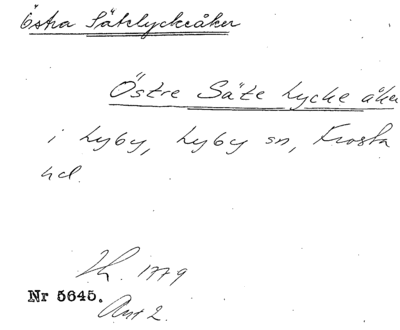 Östra Sätelyckeåker
Östre Säte Lycke åker
i Lyby, Lyby sn, Frosta
hd.
1779
Nr 5645.
Akt 2.